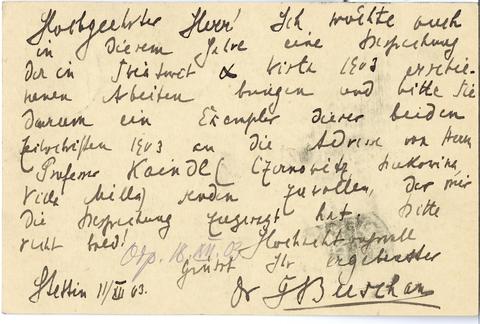 Hochgeehrter Herr! Ich möchte auch
in diesem Jahre eine Besprechung
der in Światowit & Wisła 1903 erschie-
nenen Arbeiten bringen und bitte Sie
darum ein Exemplar dieser beiden
Zeitschriften 1903 an die Adresse von Herrn
Professor Kaindl (Czernowitz, Bukowina,
Villa) senden zu wollen, der mir
die Besprechung zugesagt hat. Bitte
recht bald!
Odp. 18.XII.03 Hochachtungsvoll
grüsst Ihr ergebenster
Stettin 11/XII 03. Dr GBuschan